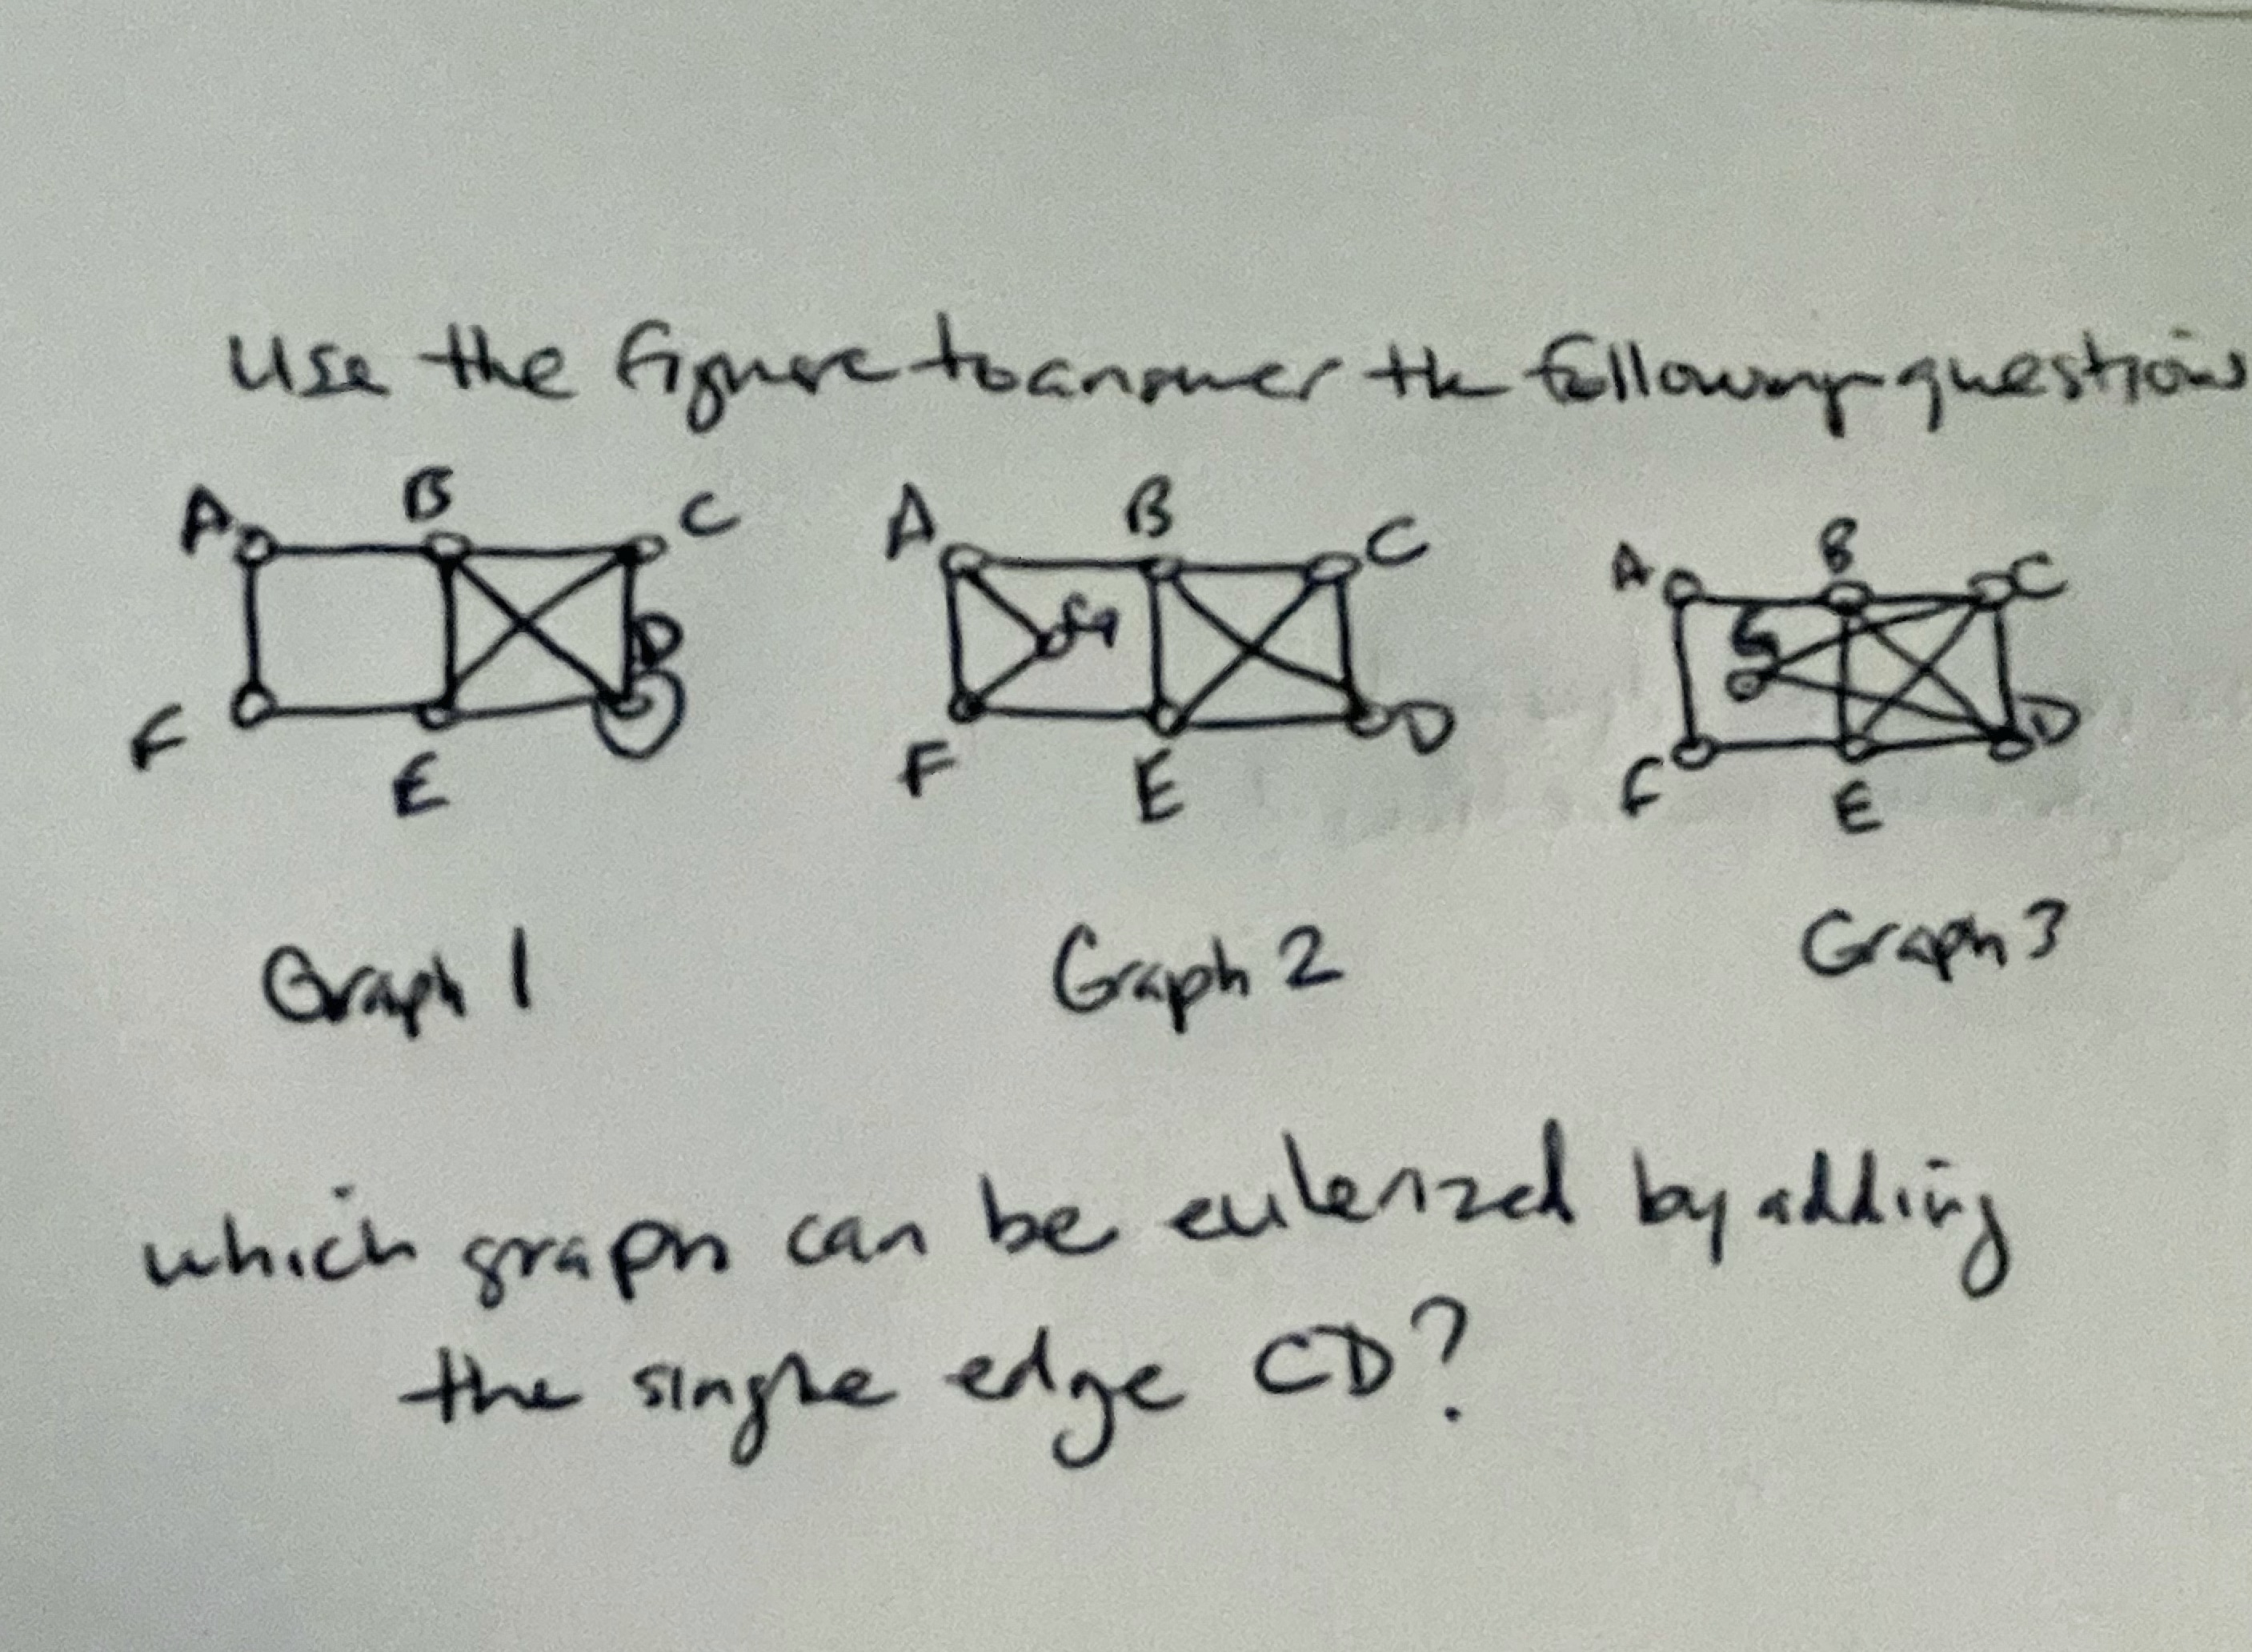 Use the figure to answer the following questions
A B C A B C A B C
D G G
F E F E D F E D
Graph 1 Graph 2 Graph 3
which graph can be eulerized by adding
the single edge CD?